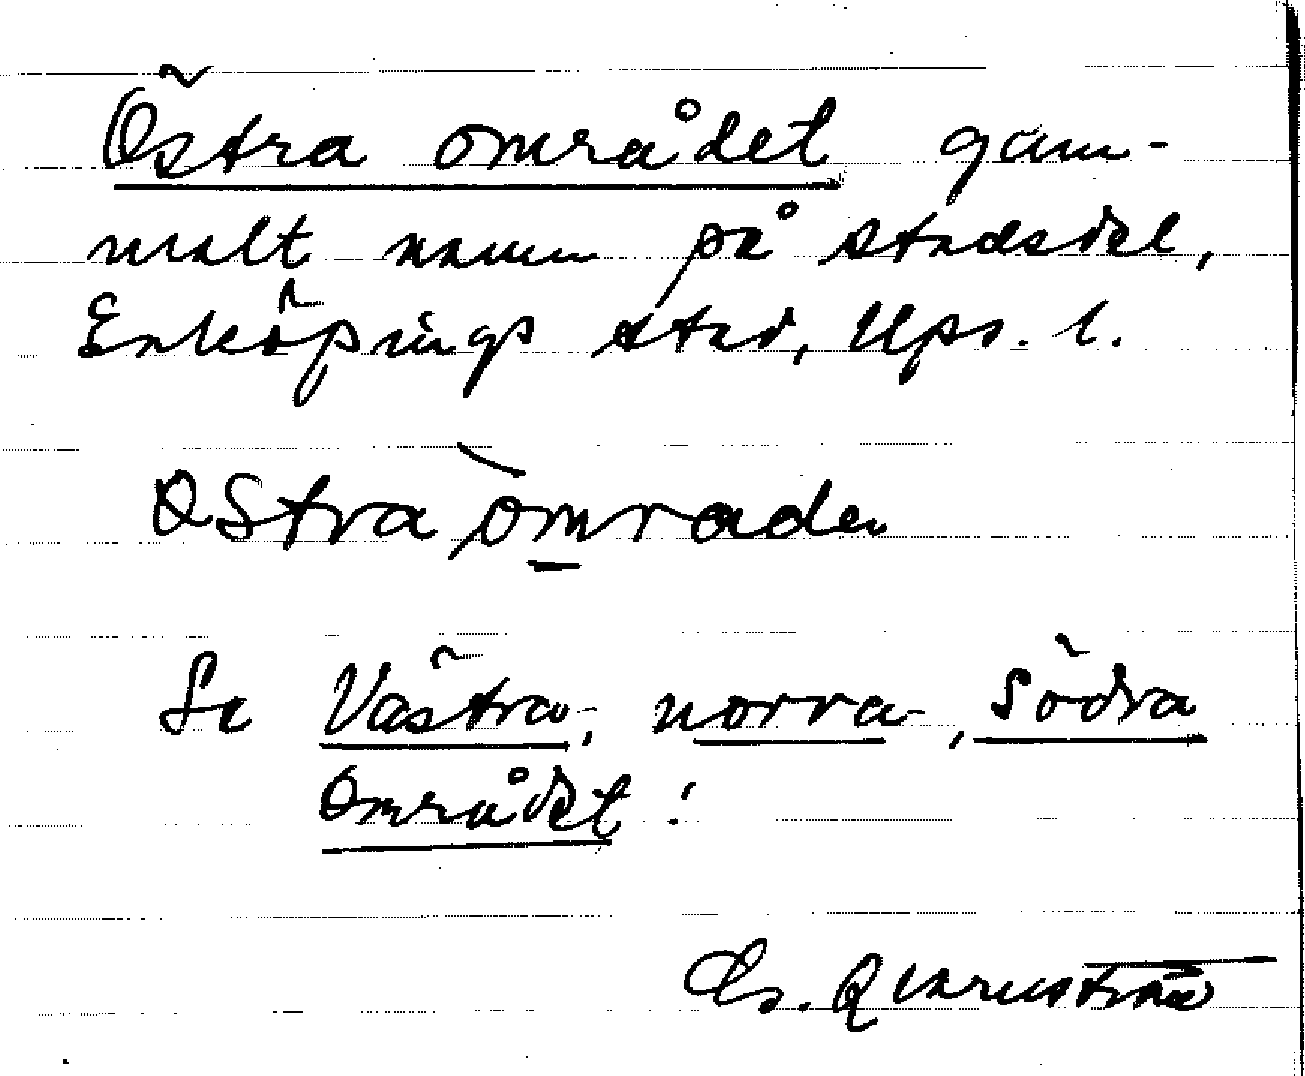 Östra området gam-
malt namn på stadsdel,
Enköpings stad, Ups. l.
östra områden
Se Västra-, norra-, Södra
området!